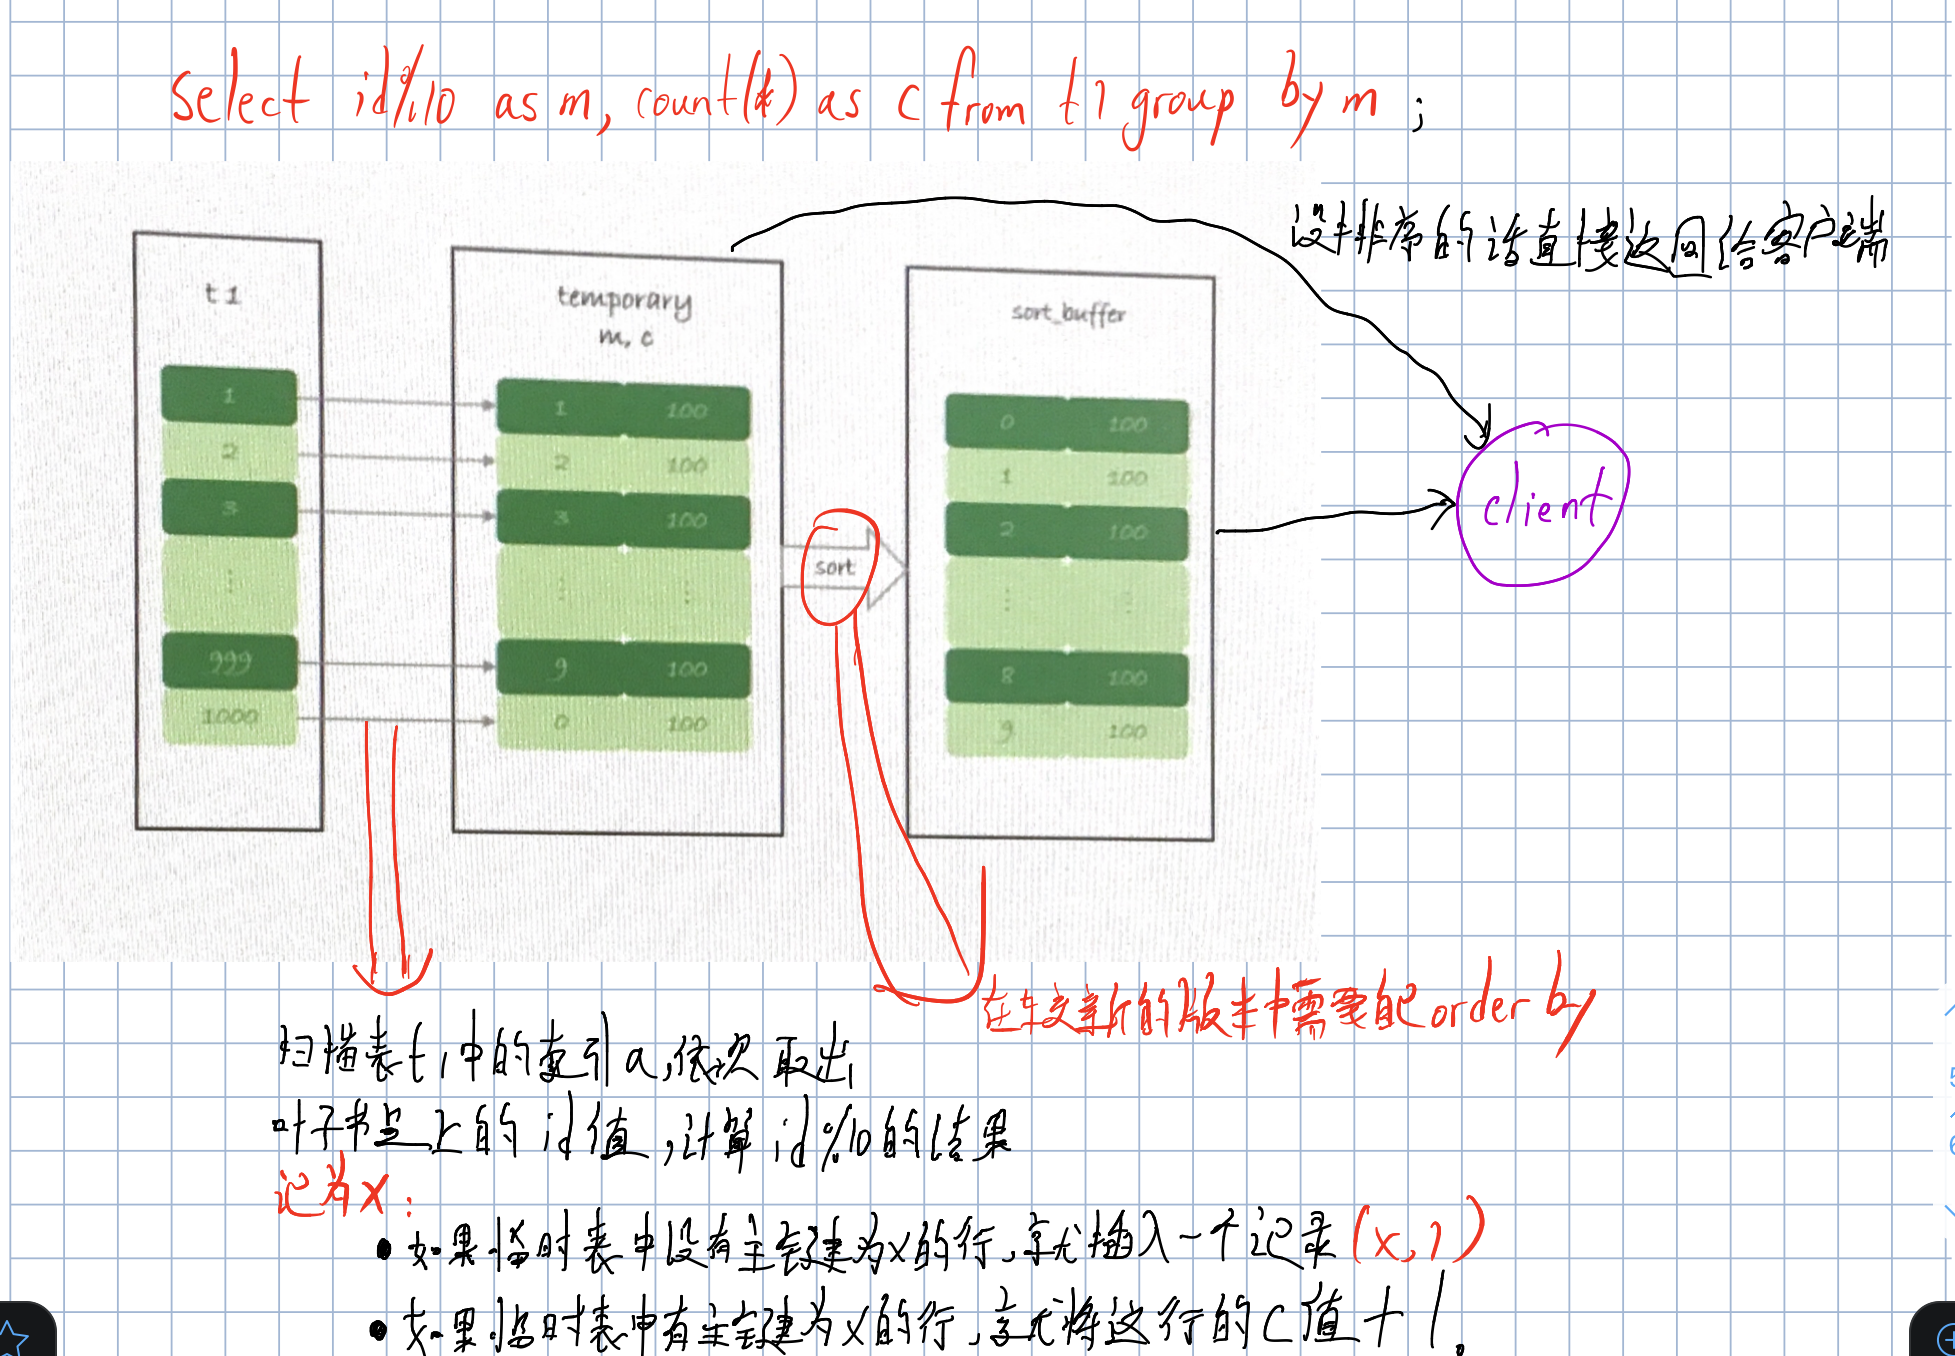 Select id%10 as m, count(*) as c from t1 group by m ;
没排序的话直接返回给客户端
t1
temporary
m, c
sort_buffer
1
2
3
⋮
999
1000
1 100
2 100
3 100
⋮ ⋮
9 100
0 100
sort
0 100
1 100
2 100
⋮ ⋮
8 100
9 100
client
在较新的版本中需要配order by
扫描表t1中的索引a,依次取出
叶子节点上的id值,计算id%10的结果
记为x:
• 如果临时表中没有主键为x的行,就插入一个记录(x,1)
• 如果临时表中有主键为x的行,就将这行的c值+1。